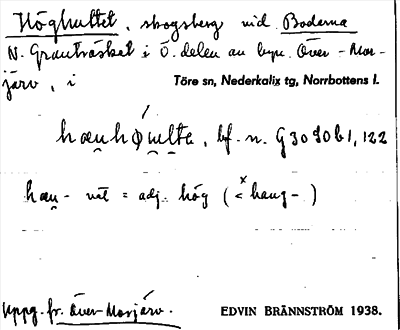 Höghultet, skogsberg vid Boderna
N. Granträsket i Ö. delen av byn Över-Mor-
järv, i Töre sn, Nederkalix tg, Norrbottens l.
bf. n. G 30 S0 b 1, 122
hau̯- väl = adj. hög (<ˣhaug-)
Uppg. fr. Över-Morjärv. EDVIN BRÄNNSTRÖM 1938.